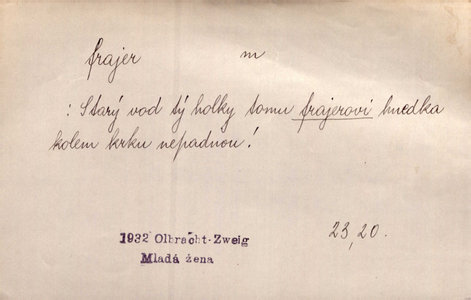 frajer m
: Starý vod tý holky tomu frajerovi hnedka
kolem krku nepadnou!
23,20.
1932 Olbracht-Zweig
Mladá žena